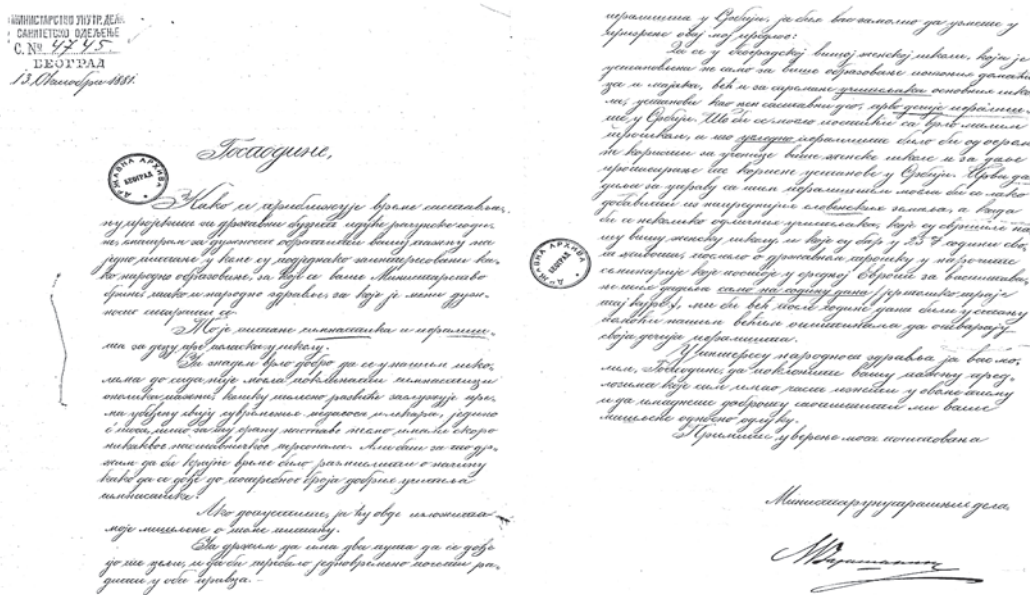 МИНИСТАРСТВО УНУТР. ДЕЛА
САНИТЕТСКО ОДЕЉЕЊЕ
С. № 4745
БЕОГРАД
13. Октобра 1881.
Господине,
ДРЖАВНА АРХИВА
БЕОГРАД
Како се приближује време саставља-
њу пројекта за државни буџет идуће рачунске годи-
не, сматрам за дужност обратити вашу пажњу на
једно питање у коме су подједнако заинтересовани ка-
ко народно образовање, за које се ваше Министарство
брини, тако и народно здравље, за које је мени дуж-
ност старати се.
То је питање гимнастика и игралиш-
та за децу пре поласка у школу.
Ја знадем врло добро да се у нашим шко-
лама до сада није могла поклањати гимнастици
онолика пажња, колику телесно развиће заслужује пре-
ма убеђењу свију савремених педагога и лекара, једино
с тога, што за ту грану наставе нисмо имали скоро
никаквог наставничког персонала. Али баш за то др-
жим да би крајње време било размишљати о начину
како да се дође до потребног броја добрих учитеља
гимнастике.
Ако допуштате, ја ћу овде изложити
моје мишљење о томе питању.
Ја држим да има два пута да се дође
до те цељи, и да би требало једновремено почети ра-
дити у оба правца. —
игралишта у Србији, ја бих вас замолио да узмете у
призрење овај мој предлог:
Да се у београдској вишој женској школи, која је
установљена не само за више образовање потоњих домаћи-
ца и мајака, већ и за спремање учитељака основних шко-
ла, установи као њен саставни део, прво дечије игралиш-
те у Србији. Што би се могло постићи са врло малим
трошком, а то угледно игралиште било би од огром-
не користи за ученице више женске школе и за даље
пропагирање те корисне установе у Србији. Прва да
диља за управу са тим игралиштем могла би се лако
добавити из напреднијих словенских земаља, а када
би се неколико одличних учитељака, које су свршиле на-
шу вишу женску школу и које су бар у 25 год години сво-
га живота, послало о државном трошку у нарочите
семинарије које постоје у средњој Европи за васпитава-
ње тих дадиља само на годину дана (јер толико траје
тај курс), ми би већ после године дана били у стању
помоћи нашим већим општинама да отварају
своја дечија игралишта.
У интересу народнога здравља ја вас мо-
лим, Господине, да поклоните вашу пажњу пред-
лозима које сам имао част изнети у овоме писму
и да имаднете доброту саопштити ми ваше
мишљење односно одлуку.
Примите уверење мога поштовања
ДРЖАВНА АРХИВА
БЕОГРАД
Министар унутрашњих дела,